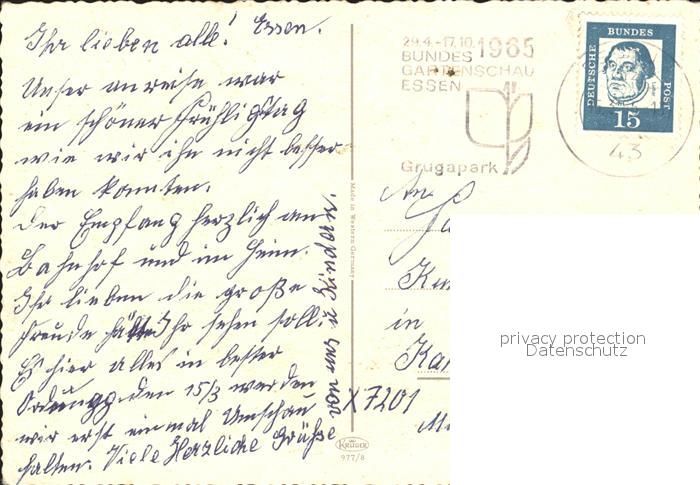 Ihr lieben alle! Essen.
Unser anreise war
ein schöner Frühligstag
wie wir ihn nicht besser
haben konnten.
Der Empfang herzlich am
Bahnhof und im Heim.
Ihr lieben die große
Freude hätte Ihr sehen soll.
Es hier alles in bester
Ordnung den 15/3 werden
wir erst einmal Umschau
halten. Viele Herzliche Grüße
von uns u Kindern.
29.4.-17.10.1965
BUNDES
GARTENSCHAU
ESSEN
Grugapark
DEUTSCHE BUNDES POST
15
43
Made in Western Germany
An
in
X 7201
KRÜGER
977/8
privacy protection
Datenschutz